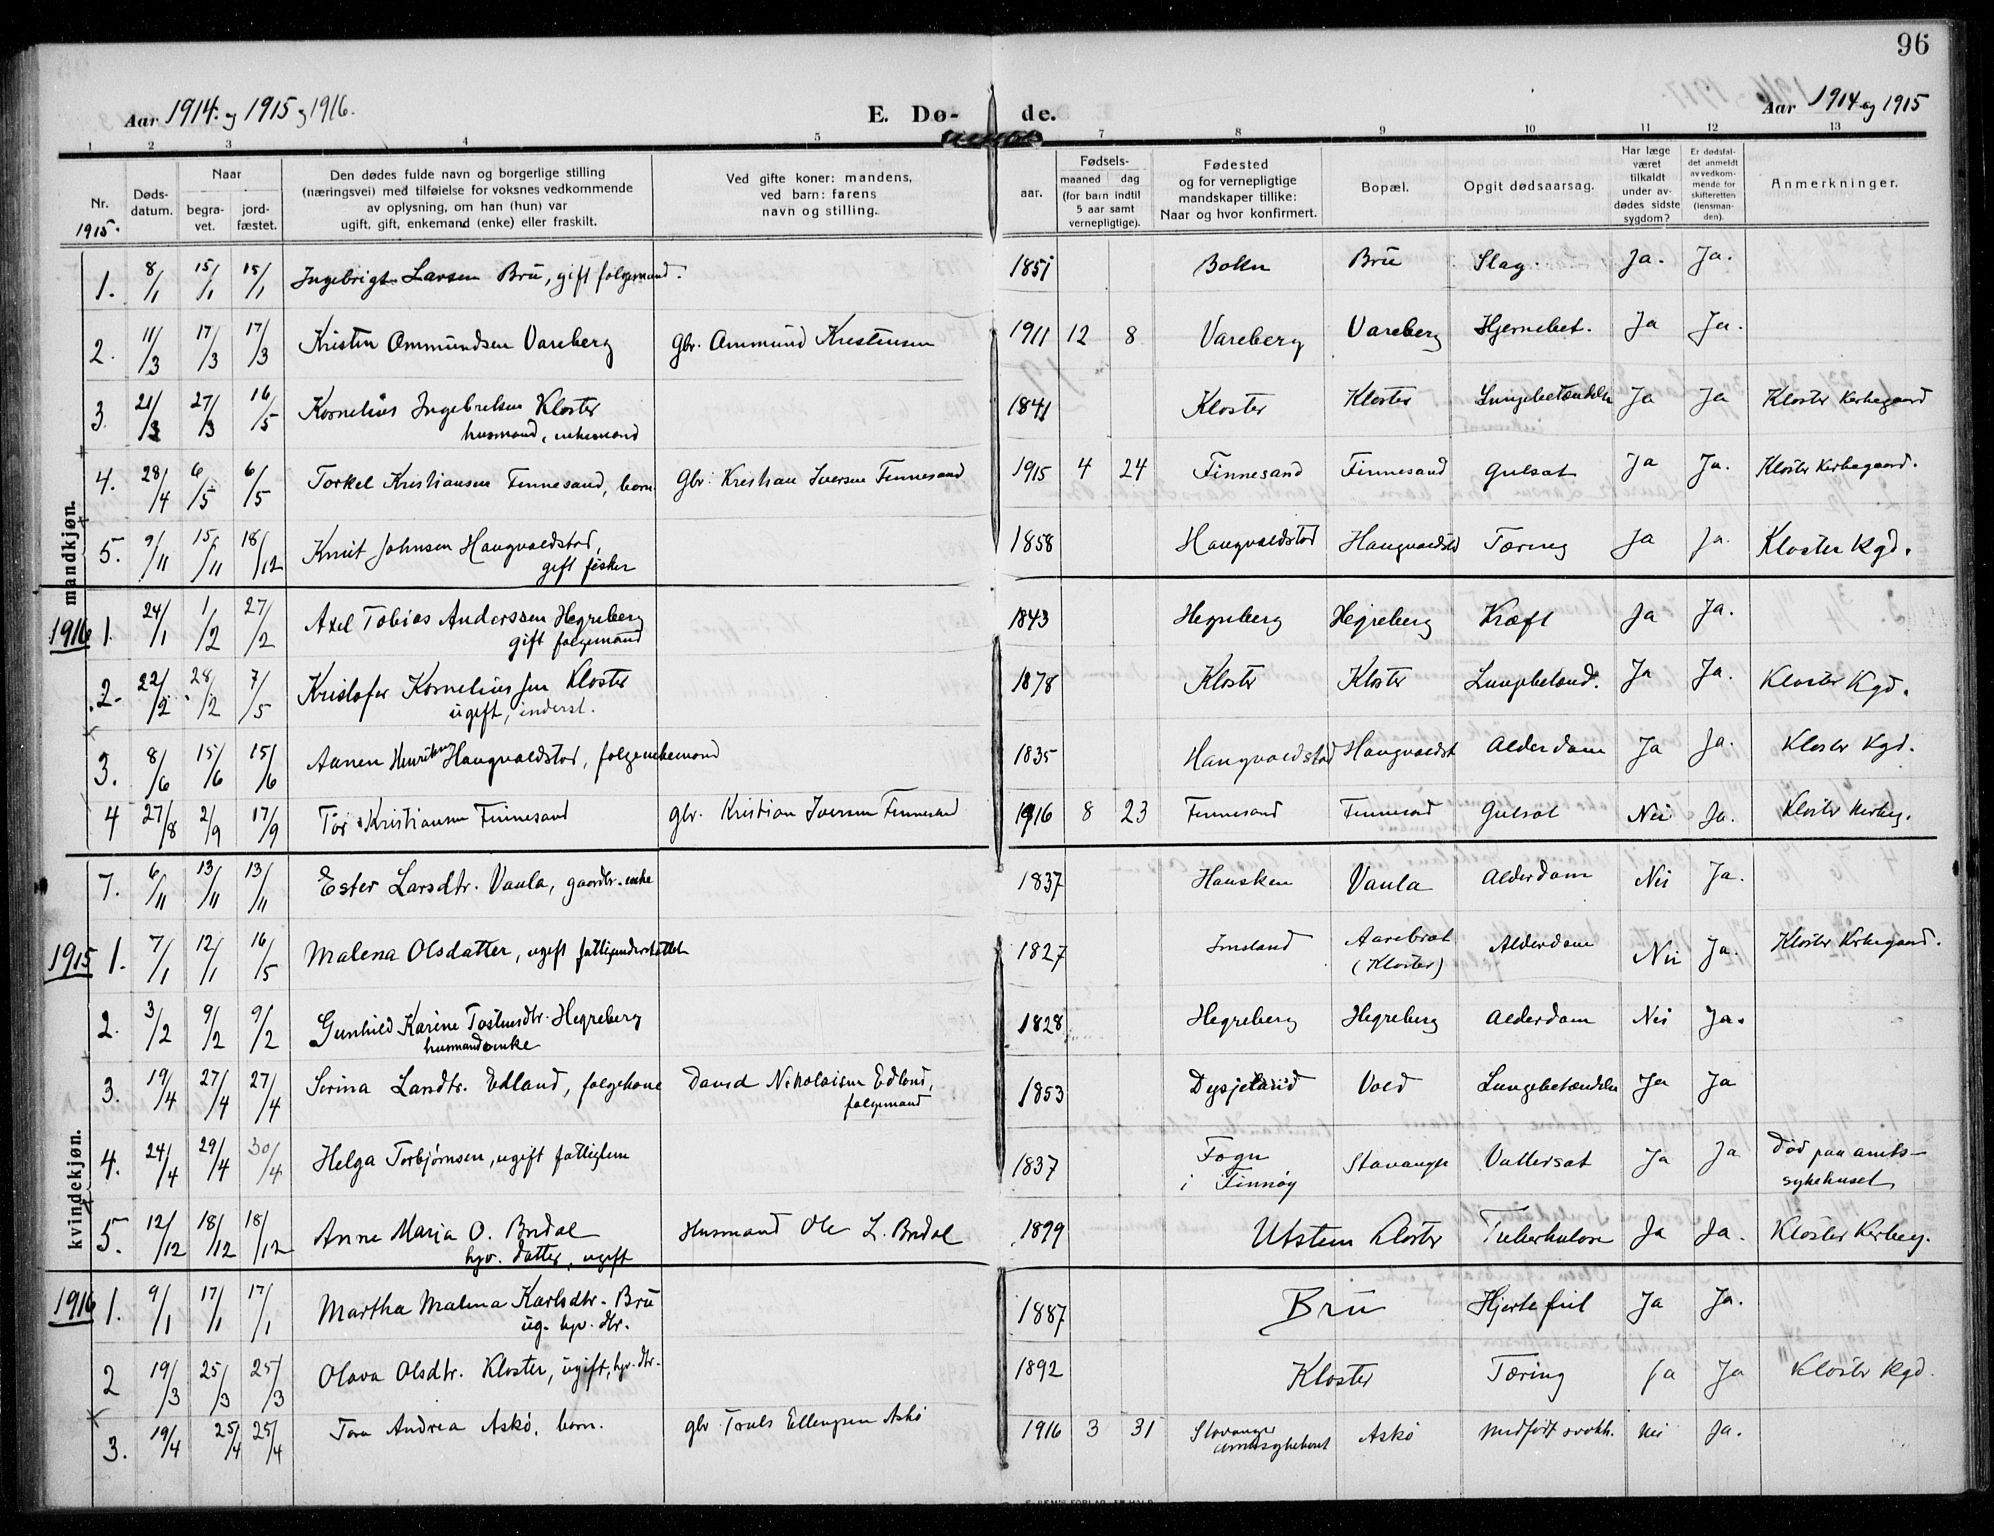 96
Aar 1914. og 1915 og 1916.
E. Dø-
de.
Aar 1914 og 1915
1 2 3 4 5 7 8 9 10 11 12 13
Nr.
1915.
Døds-
datum.
Naar
begra-
vet.
jord-
fæstet.
Den dødes fulde navn og borgerlige stilling
(næringsvei) med tilføielse for voksnes vedkommende
av oplysning, om han (hun) var
ugift, gift, enkemand (enke) eller fraskilt.
Ved gifte koner: mandens,
ved barn: farens
navn og stilling.
aar.
Fødsels-
maaned dag
(for barn indtil
5 aar samt
vernepligtige).
Fødested
og for vernepligtige
mandskaper tillike:
Naar og hvor konfirmert.
Bopæl.
Opgit dødsaarsag.
Har læge
været
tilkaldt
under av-
dødes sidste
sygdom?
Er dødsfal-
det anmeldt
av vedkom-
mende for
skifteretten
(lensman-
den).
Anmerkninger.
mandkjøn.
1. 8/1 15/1 15/1 Ingebrigt Larsen Bru, gift følgemand. 1851 Bokn Bru Slag. Ja. Ja.
2. 11/3 17/3 17/3 Kristen Ommundsen Vareberg gbr. Ommund Kristensen 1911 12 8 Vareberg Vareberg Hjernebet. Ja Ja.
3. 21/3 27/3 16/5 Kornelius Ingebretsen Kloster 1841 Kloster Kloster Lungebetændelse Ja Ja Kloster Kirkegaard
husmand, enkemand
4. 28/4 6/5 6/5 Torkel Kristiansen Finnesand, barn gbr. Kristian Iversen Finnesand 1915 4 24 Finnesand Finnesand Gulsot Ja Ja. Kloster Kirkegaard.
5. 9/11 15/11 18/12 Knut Johnsen Haugvaldstad, 1858 Haugvaldstad Haugvaldstd Tæring Ja Ja. Kloster Kgd.
gift fisker
1916 1. 24/1 1/2 27/2 Axel Tobias Anderssen Hegreberg 1843 Hegreberg Hegreberg Kræft Ja Ja.
gift følgemand
2. 22/2 28/2 7/5 Kristofer Korneliussen Kloster 1878 Kloster Kloster Lungebetænd. Ja Ja. Kloster Kgd.
ugift, inderst.
3. 8/6 15/6 15/6 Aanen Henriksen Haugvaldstad, følgeenkemand 1835 Haugvaldstad Haugvaldst Alderdom Ja Ja. Kloster Kgd.
4 27/8 2/9 17/9 Tor Kristiansen Finnesand gbr. Kristian Iversen Finnesand 1916 8 23 Finnesand Finnesand Gulsot Nei Ja. Kloster Kirkeg.
7. 6/11 13/11 13/11 Ester Larsdtr. Vaula, gaardbr.enke 1837 Hausken Vaula Alderdom Nei Ja.
kvindekjøn.
1915 1. 7/1 12/1 16/5 Malena Olsdatter, ugift fattigunderstøttet 1827 Imsland Aarebrot Alderdom Nei Ja. Kloster Kirkegaard.
(Kloster)
2. 3/2 9/2 9/2 Gunhild Karine Tostensdtr. Hegreberg 1828 Hegreberg Hegreberg Alderdom Nei Ja.
husmandsenke
3. 19/4 27/4 27/4 Serina Larsdtr. Edland, følgekone David Nikolaisen Edland, 1853 Dysjeland Vold Lungebetændelse Ja Ja
følgemand
4. 24/4 29/4 30/4 Helga Torbjørnsen, ugift fattiglem 1837 Fogn Stavanger Vattersot Ja Ja Død paa amts-
i Finnøy sykehuset
5. 12/12 18/12 18/12 Anne Marja O. Bødal Husmand Ole L. Bødal 1899 Utstein Kloster Tuberkulose Ja Ja. Kloster Kirkeg.
hjv. datter, ugift
1916 1. 9/1 17/1 17/1 Martha Malena Karlsdtr. Bru 1887 Bru Hjertefeil Ja Ja.
ug. hjv. dtr.
2 19/3 25/3 25/3 Olava Olsdtr. Kloster, ugift, hjv. dtr. 1892 Kloster Tæring Ja Ja Kloster Kgd.
3. 19/4 25/4 25/4 Tora Andrea Askø, barn. gbr Truls Ellingsen Askø 1916 3 31 Stavanger Askø Medfødt svakh. Nei Ja.
amtssykehuset